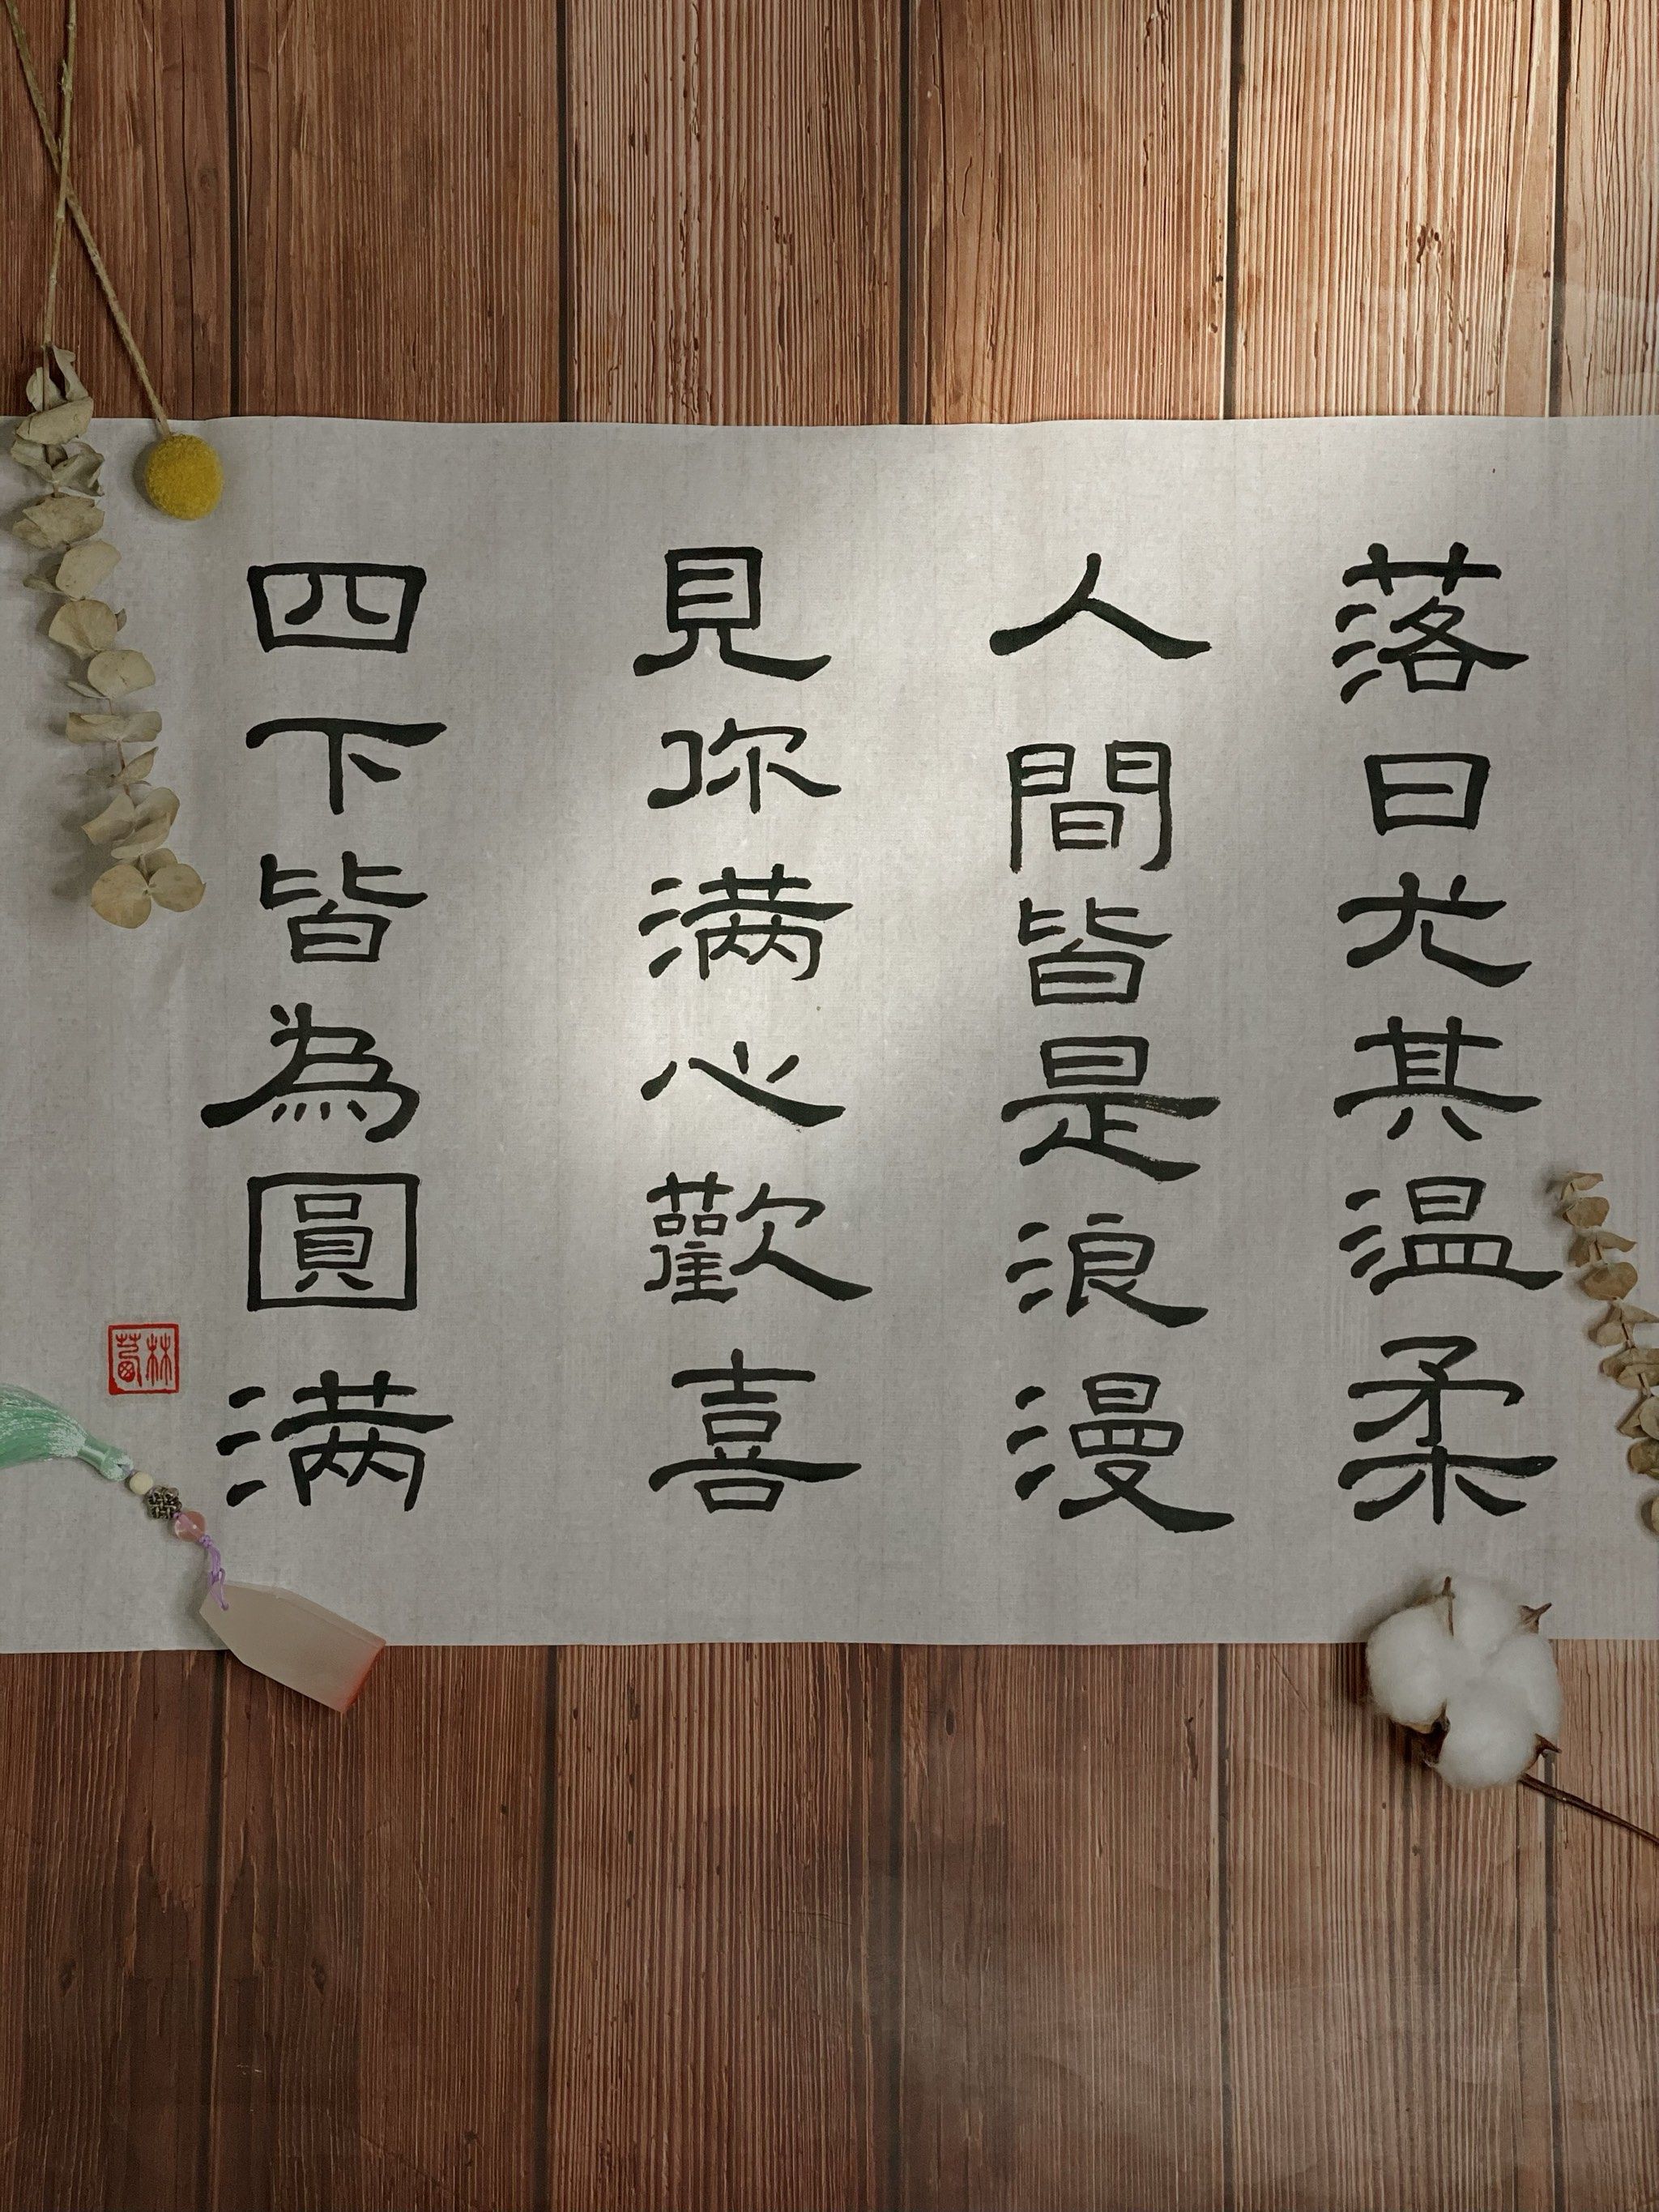 落日尤其温柔
人間皆是浪漫
見你满心歡喜
四下皆為圓满